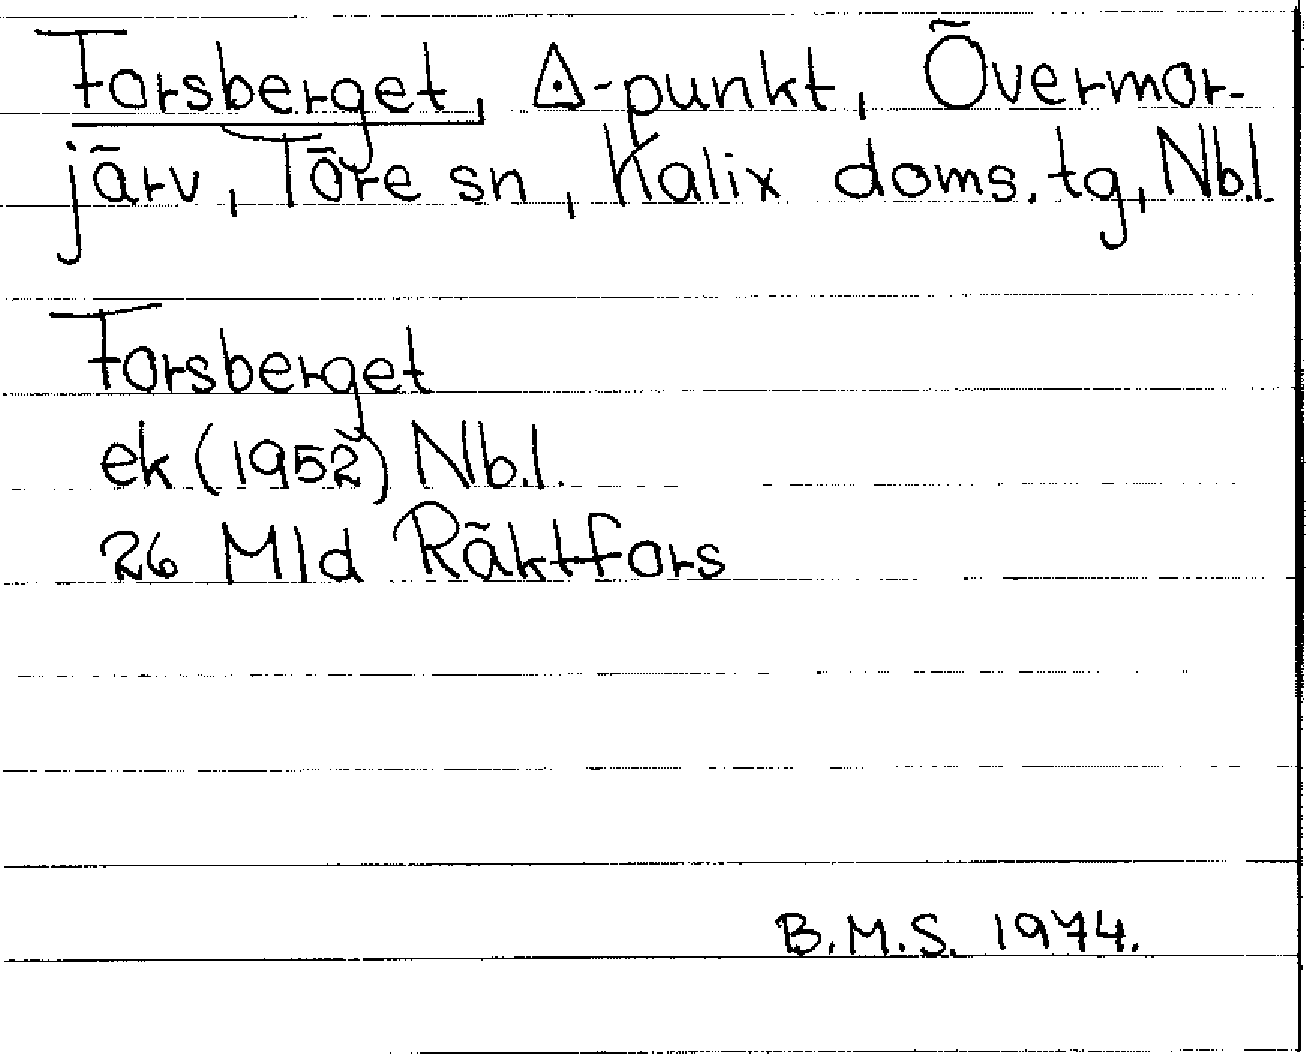 Forsberget, ◬-punkt, Övermor-
järv, Töre sn, Kalix doms. tg, Nb.l.
Forsberget
ek (1952) Nb.l.
26 Mld Räktfors
B.M.S. 1974.